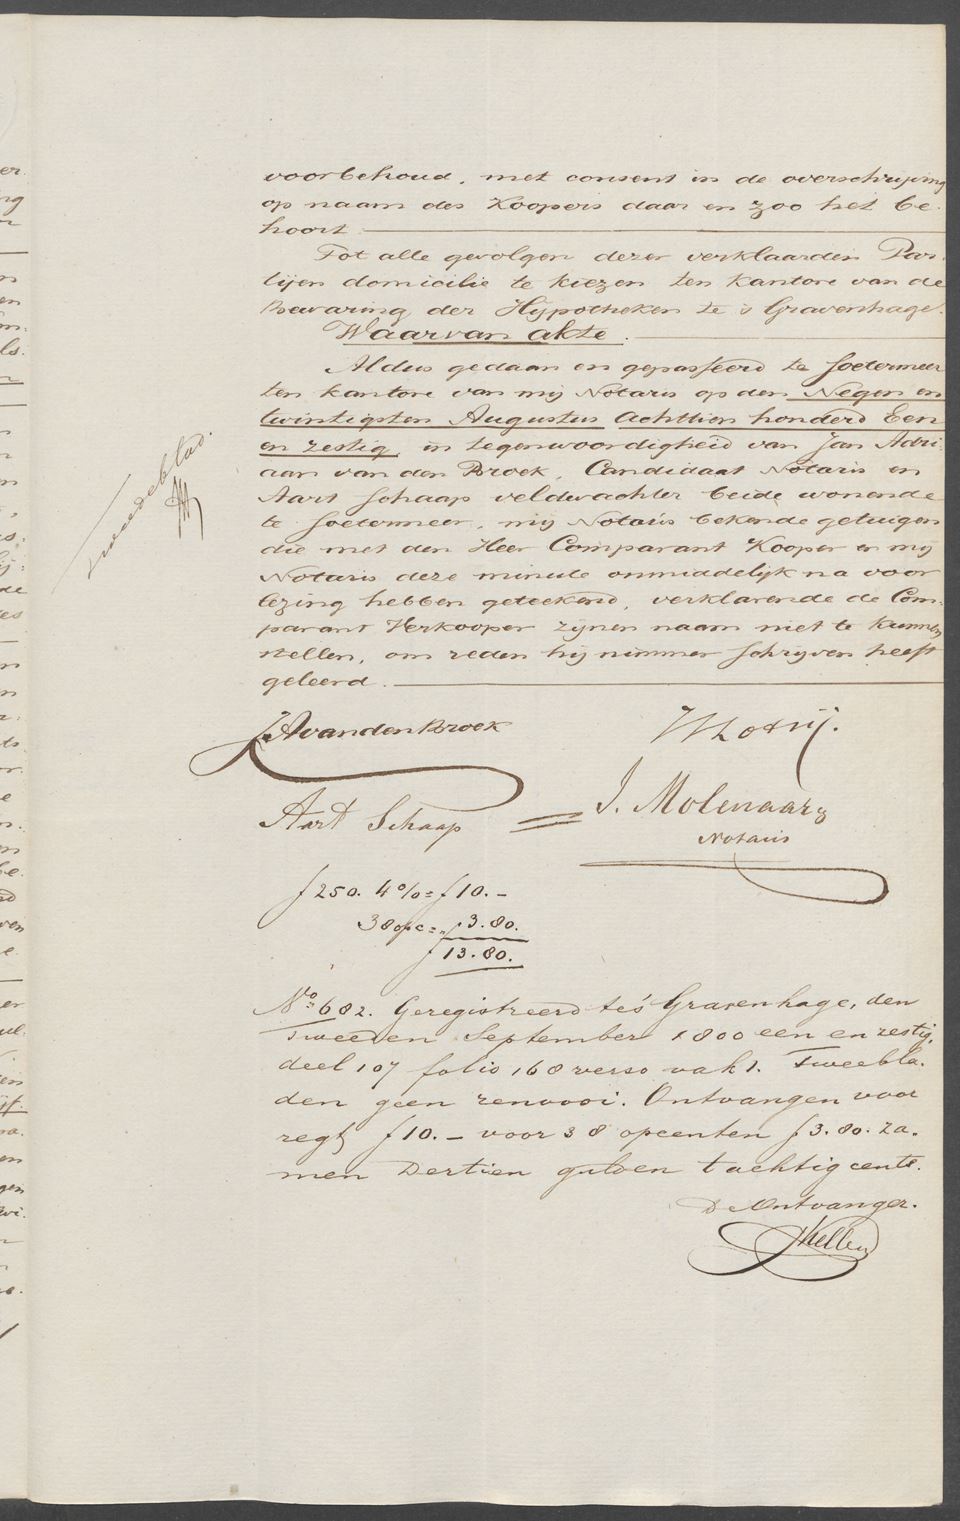 voorbehoud, met consent in de overschrijving
op naam des Koopers daar en zoo het be-
hoort.
Tot alle gevolgen dezer verklaarden Par-
tijen domicilie te kiezen ten kantore van de
Bewaring der Hypotheken te 's Gravenhage.
Waarvan akte.
Aldus gedaan en gepasseerd te Soetermeer
ten kantore van mij Notaris op den Negen en
twintigsten Augustus achttien honderd Een
en zestig in tegenwoordigheid van Jan Adri-
aan van den Broek, Candidaat Notaris en
Aart Schaap veldwachter beide wonende
te Soetermeer, mij Notaris bekende getuigen
die met den Heer Comparant Kooper en mij
Notaris deze minute onmiddelijk na voor
lezing hebben geteekend, verklarende de Com-
parant Verkooper zijnen naam niet te kunnen
stellen, om reden hij nimmer schrijven heeft
geleerd.
tweede blad.
JA van den Broek
Aart Schaap
J. Molenaar
Notaris
f 250. 4 % = f 10.-
38 opc = " f 3.80.
f 13.80.
No. 682. Geregistreerd te 's Gravenhage, den
Tweeden September 1800 een en zestig,
deel 107 folio 168 verso vak 1. Tweebla-
den geen renvooi. Ontvangen voor
regt f 10.- voor 38 opcenten f 3.80. Za-
men Dertien gulden tachtig cents.
De Ontvanger.